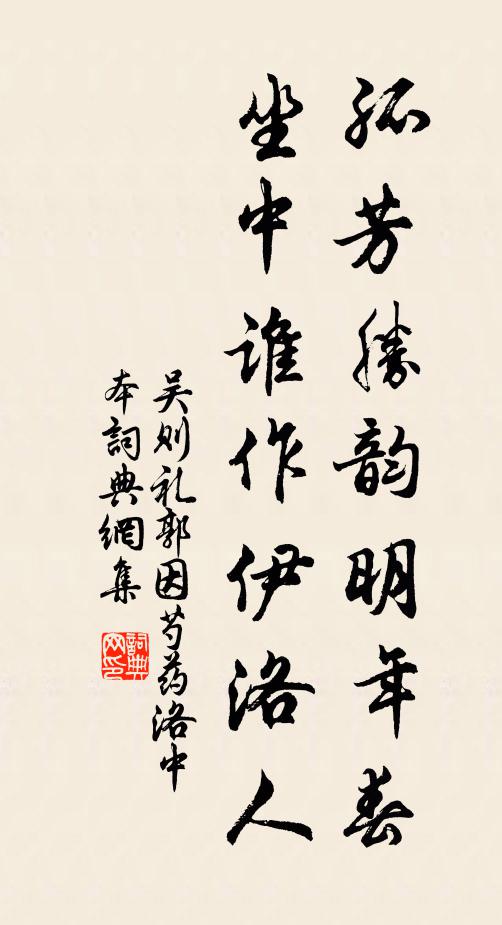 孤芳勝韵明年春
坐中谁作伊洛人
吴则礼郭因芍药洛中
本詞典網集
詞典网印